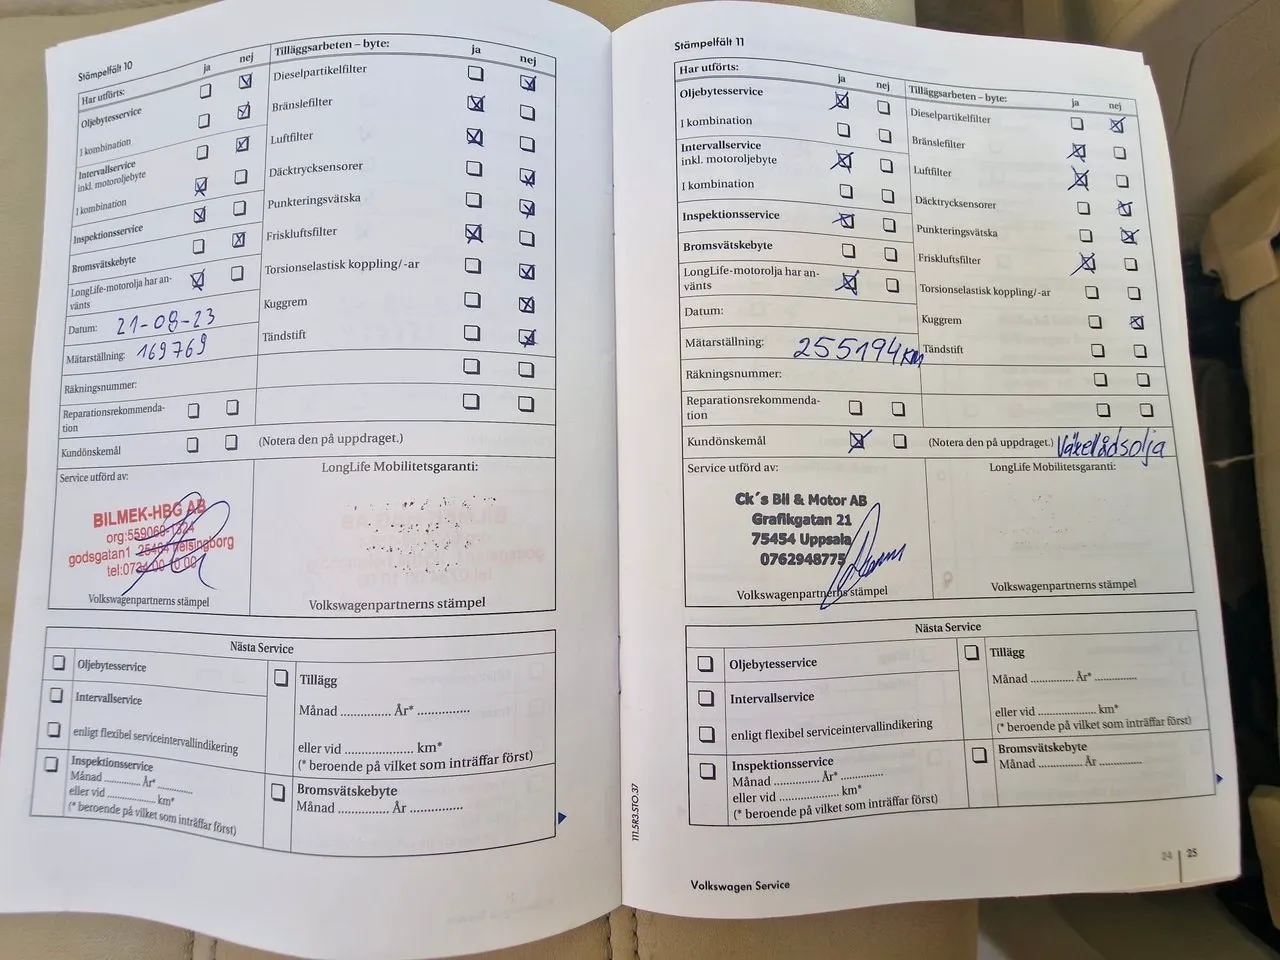 Stämpelfält 10
Har utförts:
ja
nej
Oljebytesservice
I kombination
Intervallservice
inkl. motoroljebyte
I kombination
Inspektionsservice
Bromsvätskebyte
LongLife-motorolja har an-
vänts
Datum: 21-08-23
Mätarställning: 169769
Räkningsnummer:
Reparationsrekommenda-
tion
Kundönskemål
(Notera den på uppdraget.)
Tilläggsarbeten – byte:
ja
nej
Dieselpartikelfilter
Bränslefilter
Luftfilter
Däcktrycksensorer
Punkteringsvätska
Friskluftsfilter
Torsionselastisk koppling/-ar
Kuggrem
Tändstift
Service utförd av:
BILMEK-HBG AB
org:559069-1324
godsgatan1 25484 Helsingborg
tel:0724-00 10 00
Volkswagenpartnerns stämpel
LongLife Mobilitetsgaranti:
Volkswagenpartnerns stämpel
Nästa Service
Oljebytesservice
Intervallservice
enligt flexibel serviceintervallindikering
Inspektionsservice
Månad ............. År* ...........
eller vid .................. km*
(* beroende på vilket som inträffar först)
Tillägg
Månad ............. År* ..............
eller vid ................... km*
(* beroende på vilket som inträffar först)
Bromsvätskebyte
Månad ............. År ..............
Stämpelfält 11
Har utförts:
ja
nej
Oljebytesservice
I kombination
Intervallservice
inkl. motoroljebyte
I kombination
Inspektionsservice
Bromsvätskebyte
LongLife-motorolja har an-
vänts
Datum:
Mätarställning: 255194 km
Räkningsnummer:
Reparationsrekommenda-
tion
Kundönskemål
(Notera den på uppdraget.) Växellådsolja
Tilläggsarbeten – byte:
ja
nej
Dieselpartikelfilter
Bränslefilter
Luftfilter
Däcktrycksensorer
Punkteringsvätska
Friskluftsfilter
Torsionselastisk koppling/-ar
Kuggrem
Tändstift
Service utförd av:
Ck´s Bil & Motor AB
Grafikgatan 21
75454 Uppsala
0762948775
Volkswagenpartnerns stämpel
LongLife Mobilitetsgaranti:
Volkswagenpartnerns stämpel
Nästa Service
Oljebytesservice
Intervallservice
enligt flexibel serviceintervallindikering
Inspektionsservice
Månad ............. År* ...........
eller vid .................. km*
(* beroende på vilket som inträffar först)
Tillägg
Månad ............. År* ...........
eller vid .................. km*
(* beroende på vilket som inträffar först)
Bromsvätskebyte
Månad ............. År ...........
111.5R3.STO.37
Volkswagen Service
24 | 25